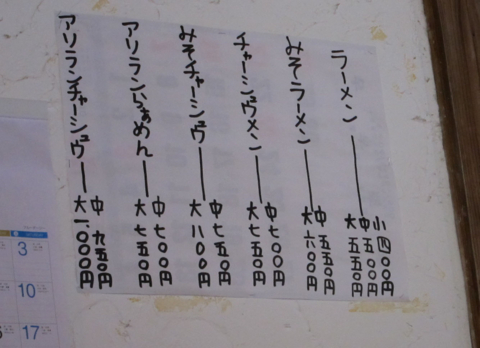 ラーメン 小 四〇〇円
中 五〇〇円
大 五五〇円
みそラーメン 中 五五〇円
大 六〇〇円
チャーシュウメン 中 七〇〇円
大 七五〇円
みそチャーシュウ 中 七五〇円
大 八〇〇円
アリランらぁめん 中 七〇〇円
大 七五〇円
アリランチャーシュウ 中 九五〇円
大 一、〇〇〇円
3
10
17